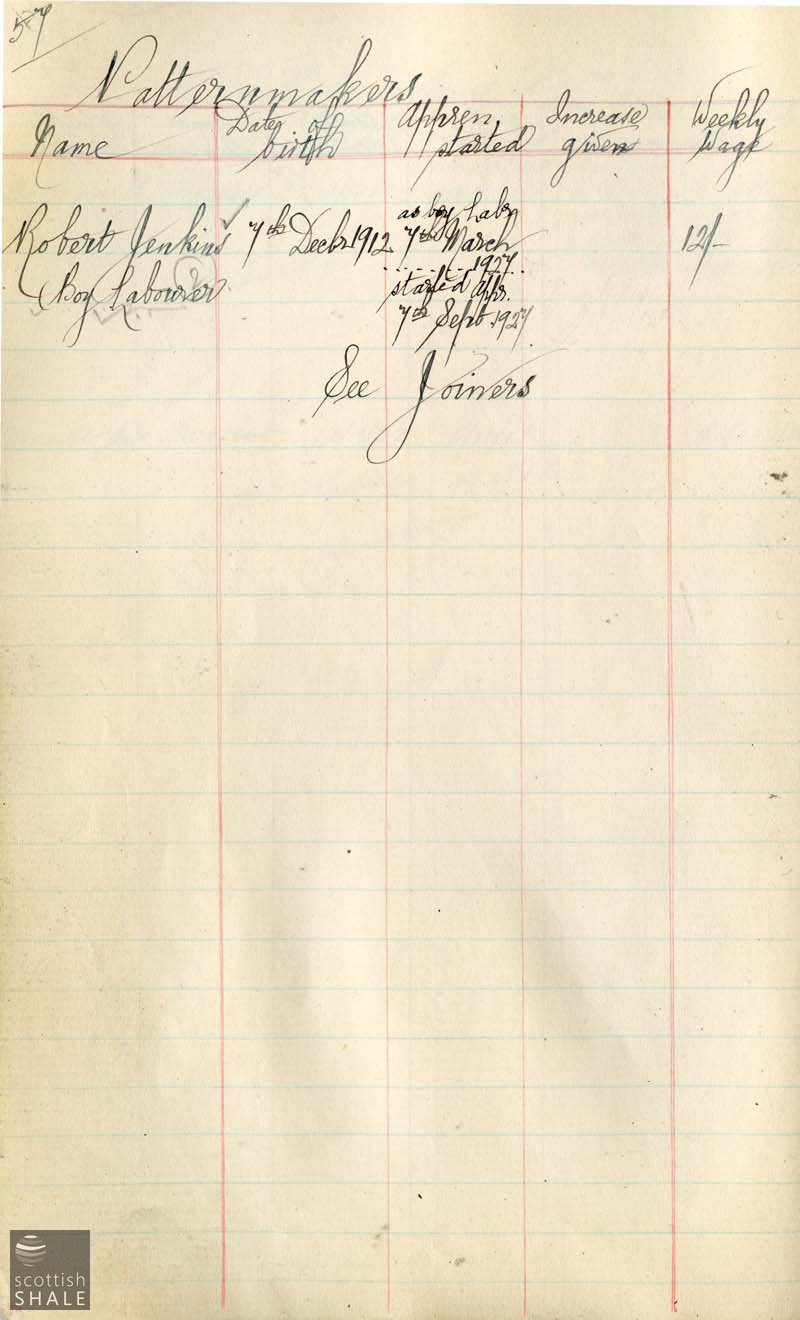 57
Patternmakers
Name Date of birth Appren started Increase given Weekly Wage
as boy Labr
Robert Jenkins 7th Decbr 1912 7th March 12/-
1927
(Boy Labourer started Appr.
7th Sept. 1927
See Joiners
scottish
SHALE